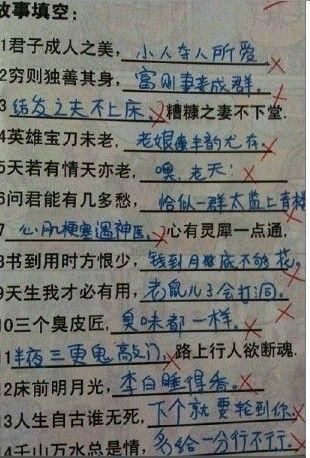 故事填空：
1君子成人之美，小人夺人所爱。
2穷则独善其身，富则妻妾成群。
3 结发之夫不上床，糟糠之妻不下堂.
4英雄宝刀未老，老娘丰韵尤存。
5天若有情天亦老，噢，老天：
6问君能有几多愁，恰似一群太监上青楼
7 心肌梗塞遇神医，心有灵犀一点通，
8书到用时方恨少，钱到月底不够花。
9天生我才必有用，老鼠儿子会打洞。
10三个臭皮匠，臭味都一样。
11半夜三更鬼敲门，路上行人欲断魂.
12床前明月光，李白睡得香。
13人生自古谁无死，下个就要轮到你
14千山万水总是情，多给一分行不行。